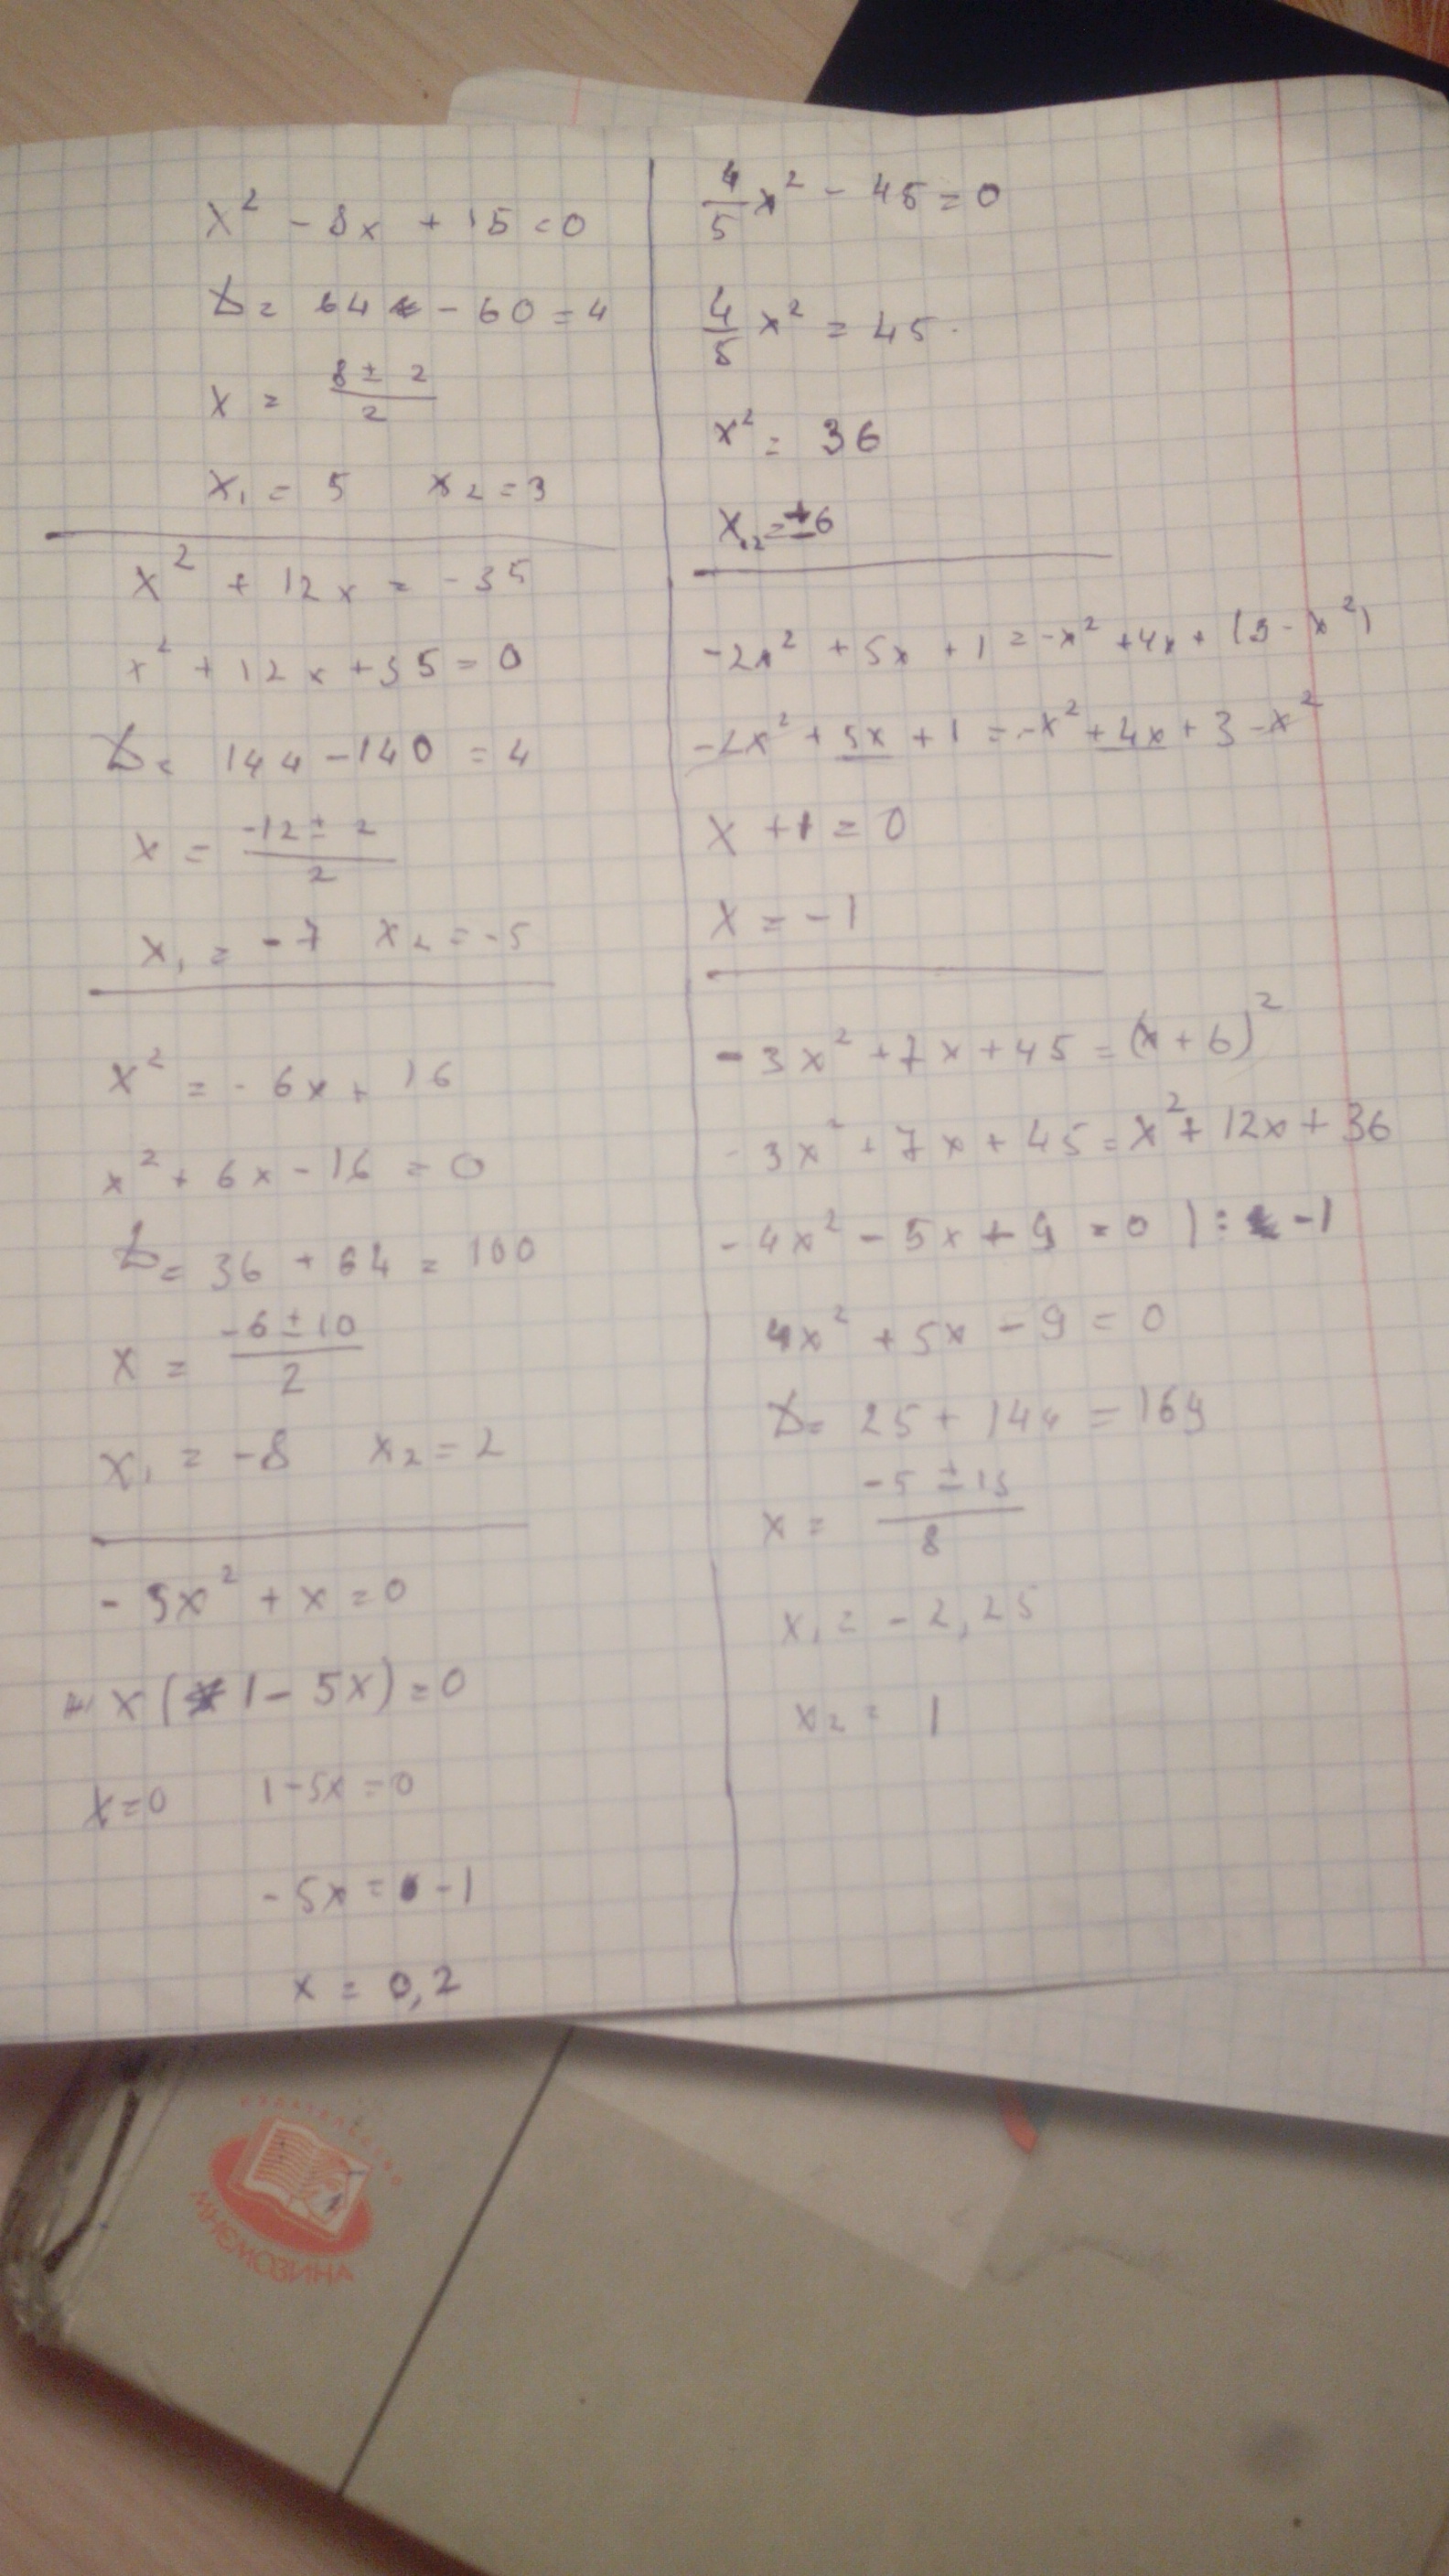 x² - 8x + 15 = 0
D = 64 - 60 = 4
x = (8 ± 2)/2
x₁ = 5 x₂ = 3
x² + 12x = -35
x² + 12x + 35 = 0
D = 144 - 140 = 4
x = (-12 ± 2)/2
x₁ = -7 x₂ = -5
x² = -6x + 16
x² + 6x - 16 = 0
D = 36 + 64 = 100
x = (-6 ± 10)/2
x₁ = -8 x₂ = 2
- 5x² + x = 0
x(1 - 5x) = 0
x = 0 1 - 5x = 0
- 5x = -1
x = 0,2
4/5 x² - 45 = 0
4/5 x² = 45
x² = 36
x₁,₂ = ±6
-2x² + 5x + 1 = -x² + 4x + (3 - x²)
-2x² + 5x + 1 = -x² + 4x + 3 - x²
x + 1 = 0
x = -1
- 3x² + 7x + 45 = (x + 6)²
- 3x² + 7x + 45 = x² + 12x + 36
- 4x² - 5x + 9 = 0 | : -1
4x² + 5x - 9 = 0
D = 25 + 144 = 169
x = (-5 ± 13)/8
x₁ = - 2,25
x₂ = 1
ИЗДАТЕЛЬСТВО
МНЕМОЗИНА